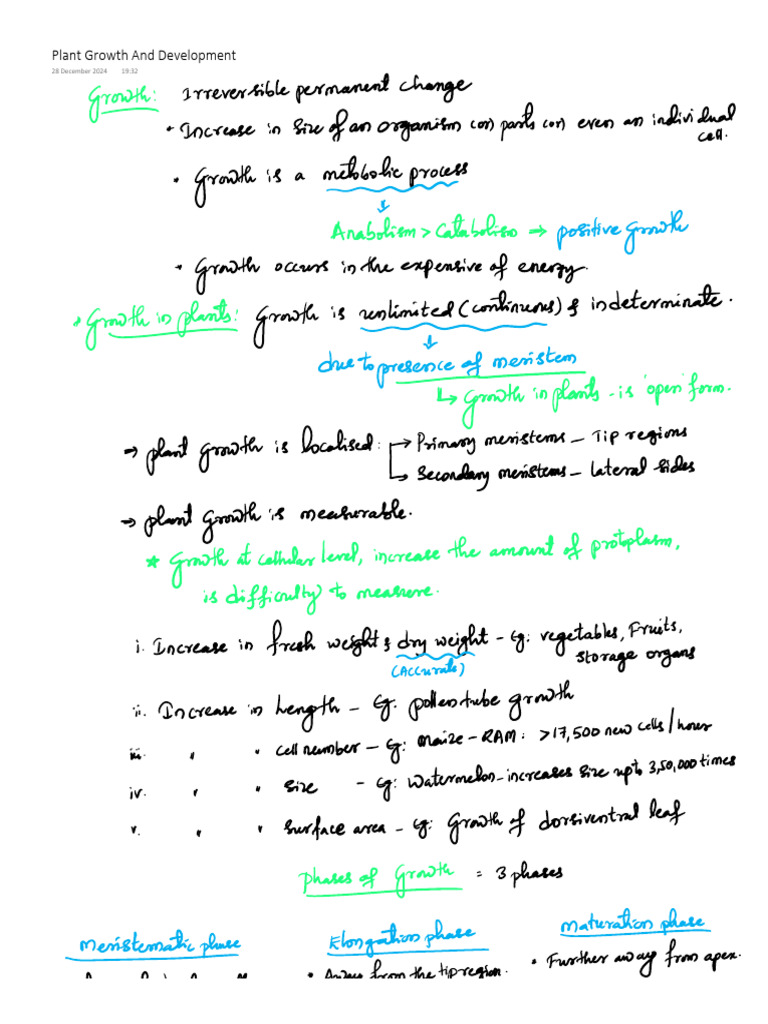 Plant Growth And Development
28 December 2024 19:32
Growth: Irreversible permanent change
• Increase in size of an organism (or) parts (or) even an individual
cell.
• Growth is a metobolic process
↓
Anabolism > Catabolism → positive growth
• Growth occurs in the expensive of energy.
• Growth in plants: Growth is unlimited (continuous) & indeterminate.
↓
due to presence of meristem
↳ Growth in plants - is 'open' form.
→ plant growth is localised: → Primary meristems - Tip regions
↳ Secondary meristems - Lateral sides
→ plant growth is measurable.
* Growth at cellular level, increase the amount of protoplasm,
is difficulty to measure.
i. Increase in fresh weight & dry weight - Eg: vegetables, Fruits,
(Accurate) storage organs
ii. Increase in Length - Eg. pollentube growth
iii. " " cell number - Eg: Maize - RAM: >17,500 new cells/hour
iv. " " size - Eg: Watermelon - increases size upto 3,50,000 times
v. " " surface area - Eg: Growth of dorsiventral leaf
Phases of Growth = 3 phases
Meristematic phase Elongation phase Maturation phase
• Away from the tip region. • Further away from apex.